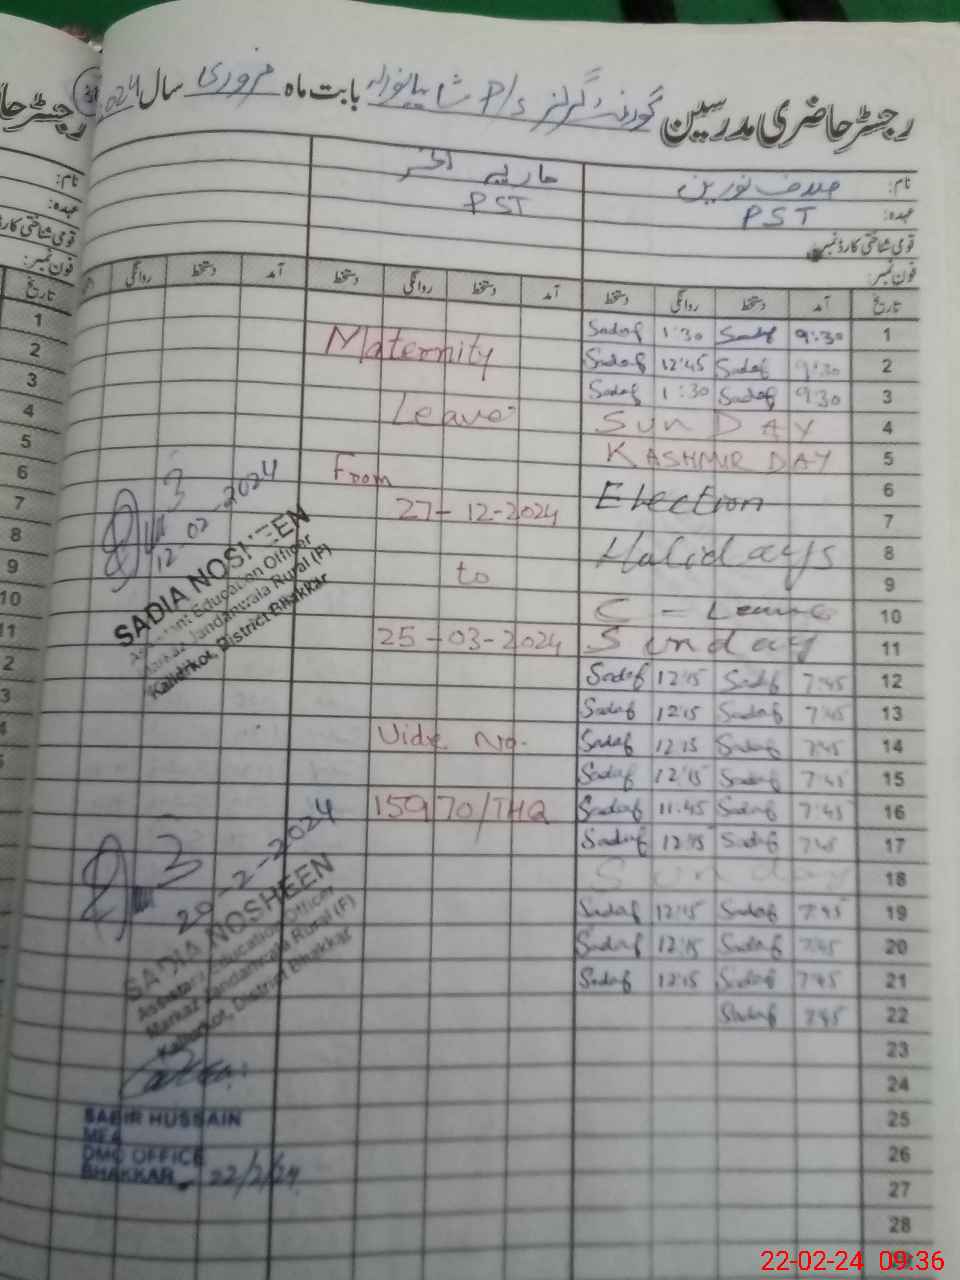 رجسٹر حاضری مدرسین گورنمنٹ گرلز P/S شاہانوالہ بابت ماہ فروری سال 2024
نام: صدف نورین
عہدہ: PST PST
قومی شناختی کارڈ نمبر:
فون نمبر:
تاریخ آمد دستخط روانگی دستخط آمد دستخط روانگی دستخط آمد دستخط روانگی
1 9:30 Sadaf 1:30 Sadaf
2 9:30 Sadaf 12:45 Sadaf
3 9:30 Sadaf 1:30 Sadaf
4 SUNDAY
5 KASHMIR DAY
6 Election
7
8 Holidays
9
10 C - Leave
11 Sunday
12 7:45 Sadaf 12:15 Sadaf
13 7:45 Sadaf 12:15 Sadaf
14 7:45 Sadaf 12:15 Sadaf
15 7:45 Sadaf 12:15 Sadaf
16 7:45 Sadaf 11:45 Sadaf
17 7:45 Sadaf 12:15 Sadaf
18 Sunday
19 7:45 Sadaf 12:15 Sadaf
20 7:45 Sadaf 12:15 Sadaf
21 7:45 Sadaf 12:15 Sadaf
22 7:45 Sadaf
23
24
25
26
27
28
Maternity
Leave
From
27-12-2024
to
25-03-2024
Vide No.
15970/THQ
3
12-02-2024
SADIA NOSHEEN
Assistant Education Officer
Markaz Jandanwala Rural (F)
Kallurkot, District Bhakkar
3
20-2-2024
SADIA NOSHEEN
Assistant Education Officer
Markaz Jandanwala Rural (F)
Kallurkot, District Bhakkar
SABIR HUSSAIN
MEA
DMO OFFICE
BHAKKAR 22/2/24
رجسٹر حا
نام:
عہدہ:
قومی شناختی کارڈ
فون نمبر:
تاریخ
1
2
3
4
5
6
7
8
9
10
11
22-02-24 09:36